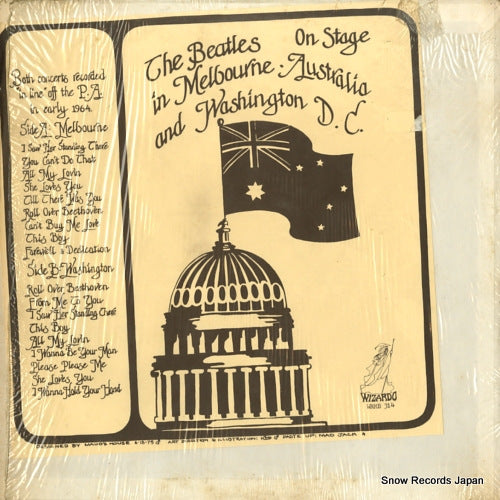 The Beatles On Stage
in Melbourne, Australia
and Washington D.C.
Both concerts recorded
"in line" off the P.A.
in early 1964.
Side A: Melbourne
I Saw Her Standing There
You Can't Do That
All My Lovin
She Loves You
Till There Was You
Roll Over Beethoven
Can't Buy Me Love
This Boy
Farewell & Dedication
Side B: Washington
Roll Over Beethoven
From Me To You
I Saw Her Standing There
This Boy
All My Lovin
I Wanna Be Your Man
Please Please Me
She Loves You
I Wanna Hold Your Hand
WIZARDO
WRMB 314
DESIGNED BY HOUSE ART DIRECTION & ILLUSTRATION: PASTE UP: MAD JACK
Snow Records Japan